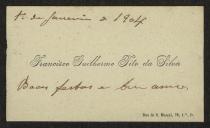 1º de Janeiro de 1904
Francisco Guilherme Tito da Silva
Boas festas e bom anno.
Rua de S. Marçal, 79, 1.º, D.